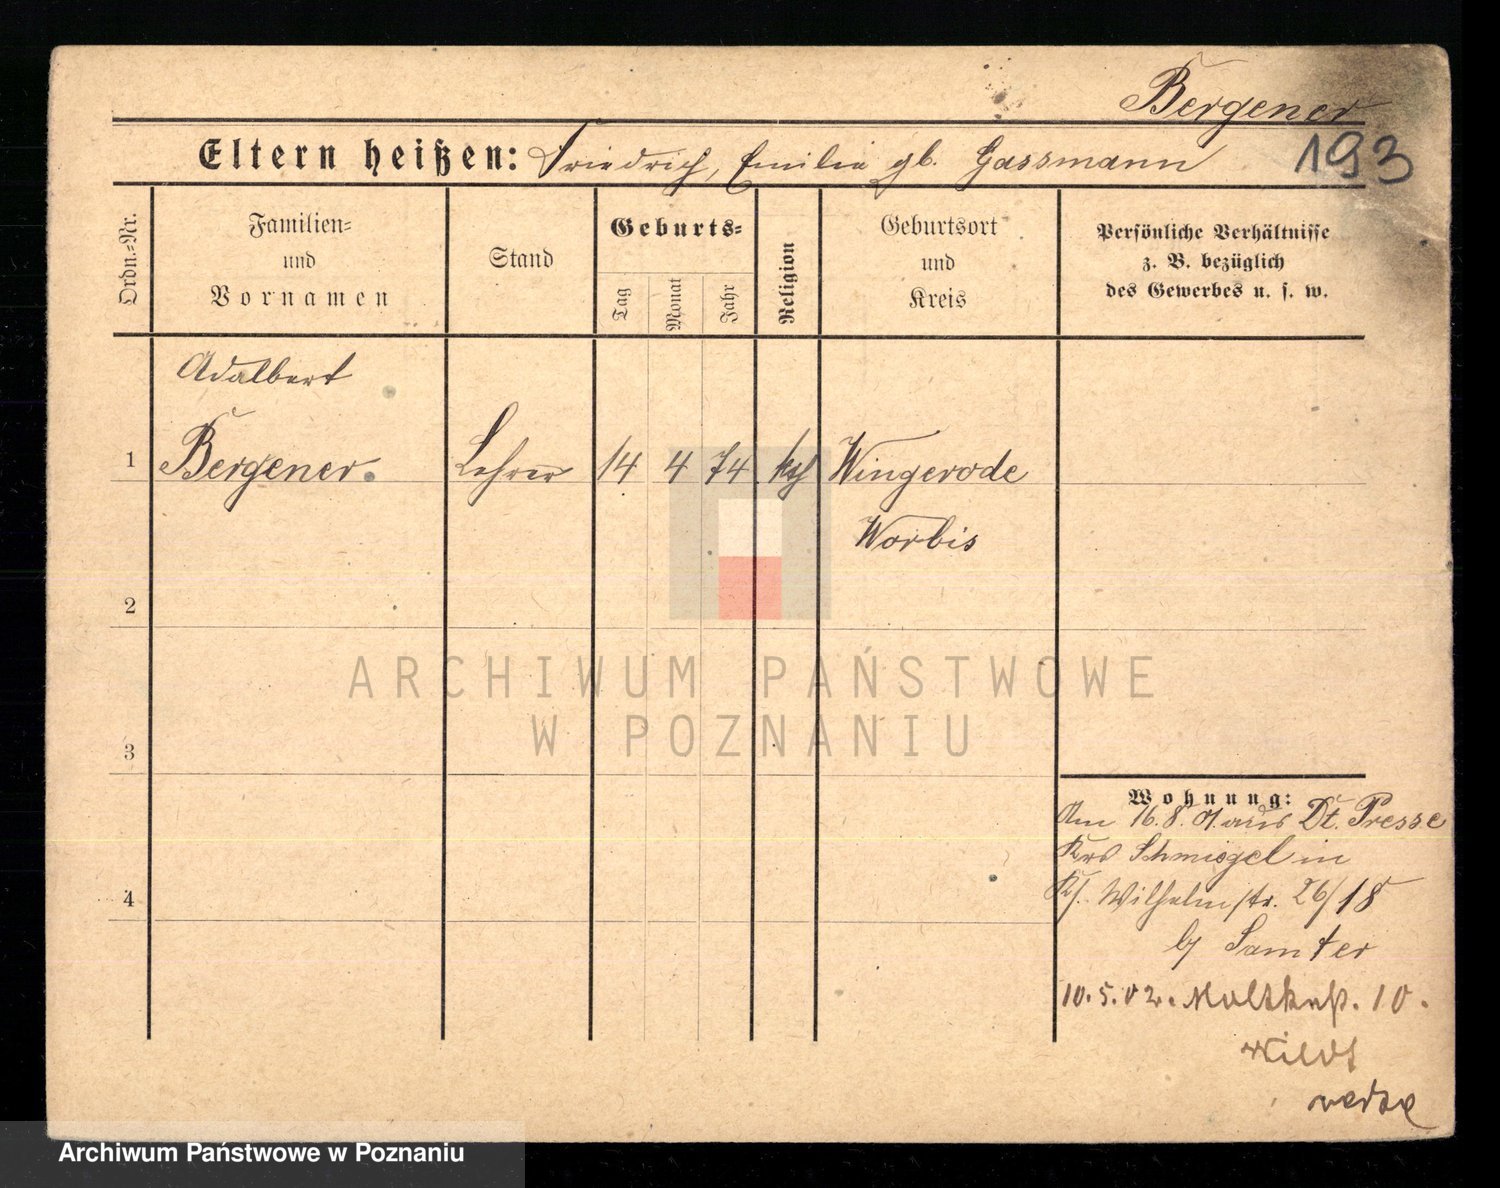 Bergener
193
Eltern heißen: Friedrich, Emilie gb. Gassmann
Ordn.-Nr.
Familien-
und
Vornamen
Stand
Geburts-
Tag
Monat
Jahr
Religion
Geburtsort
und
Kreis
Persönliche Verhältnisse
z. B. bezüglich
des Gewerbes u. s. w.
Adalbert
1 Bergener. Lehrer 14 4 74 kth Wingerode
Worbis
2
3
4
ARCHIWUM PAŃSTWOWE
W POZNANIU
Wohnung:
Am 16.8.01 aus Dt. Presse
Krs Schmiegel in
Wilhelmstr. 26/18
by Samter
10.5.02. Moltkestr. 10.
Wildt
Archiwum Państwowe w Poznaniu